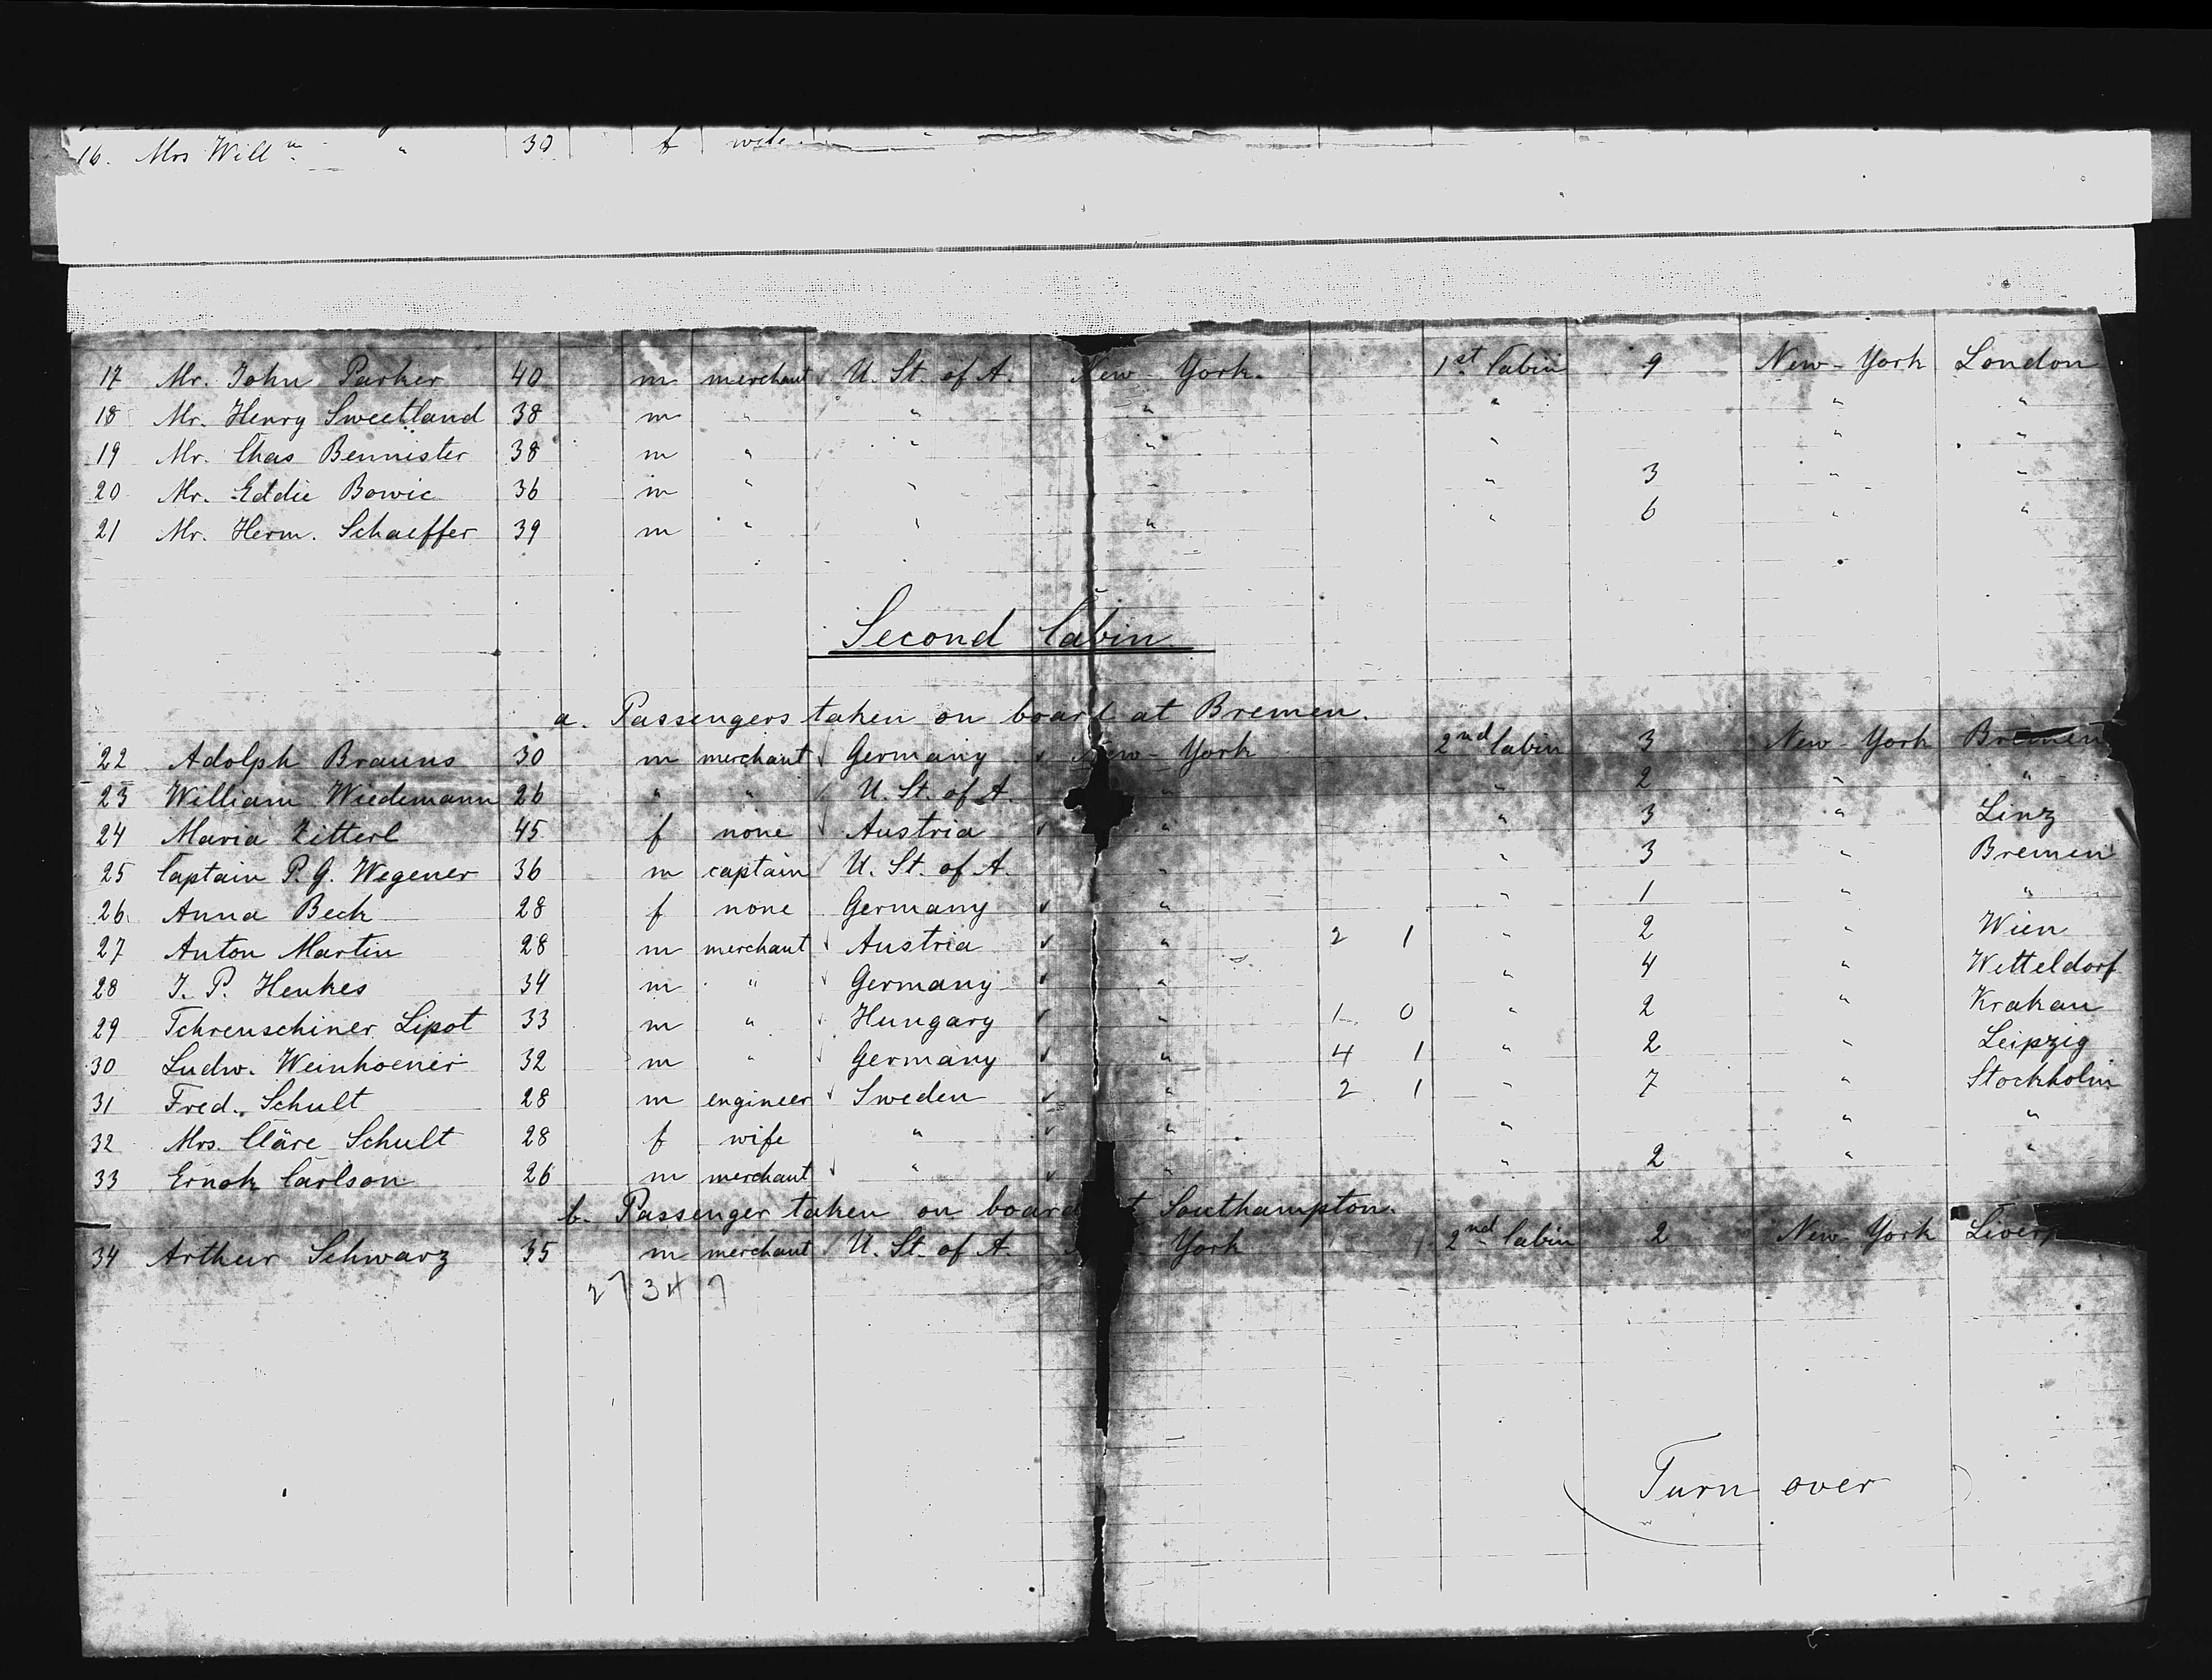 16. Mrs Will m " 30 f wife.
17 Mr. John Parker 40 m merchant U. St. of A. New-York. 1st Cabin 9 New-York London
18 Mr. Henry Sweetland 38 m " " " " " "
19 Mr. Chas Bennister 38 m " " " " " "
20 Mr. Eddie Bowie 36 m " " " " 3 " "
21 Mr. Herm. Schaeffer 39 m " " " " 6 " "
Second Cabin
a. Passengers taken on board at Bremen.
22 Adolph Brauns 30 m merchant Germany New-York 2nd Cabin 3 New-York Bremen
23 William Wiedemann 26 " " U. St. of A. " " 2 " "
24 Maria Zitterl 45 f none Austria " " 3 " Linz
25 Captain P. G. Wegener 36 m captain U. St. of A. " " 3 " Bremen
26 Anna Beck 28 f none Germany " " 1 " "
27 Anton Martin 28 m merchant Austria " 2 1 " 2 " Wien
28 J. P. Henkes 34 m " Germany " " 4 " Wetteldorf
29 Tchrenschiner Lipot 33 m " Hungary " 1 0 " 2 " Krakau
30 Ludw. Weinhoener 32 m " Germany " 4 1 " 2 " Leipzig
31 Fred. Schult 28 m engineer Sweden " 2 1 " 7 " Stockholm
32 Mrs. Cläre Schult 28 f wife " " " " "
33 Ernok Carlson 26 m merchant " " " 2 " "
b. Passenger taken on board t Southampton.
34 Arthur Schwarz 35 m merchant U. St. of A. York 2nd Cabin 2 New-York Liverp
27 34 7
Turn over